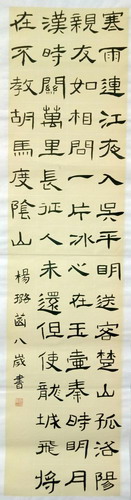 寒雨連江夜入吳平明送客楚山孤洛陽
親友如相問一片冰心在玉壺秦時明月
漢時關萬里長征人未還但使龍城飛將
在不教胡馬度陰山
楊璐茵八歲書